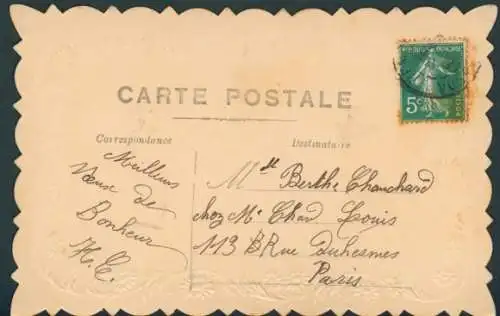 CARTE POSTALE
Correspondance
Destinataire
Meilleurs
Vœux de
Bonheur
H. C.
Mlle Berthe Chanchard
chez Mr Chad Louis
113 B Rue Duhesmes
Paris
5c